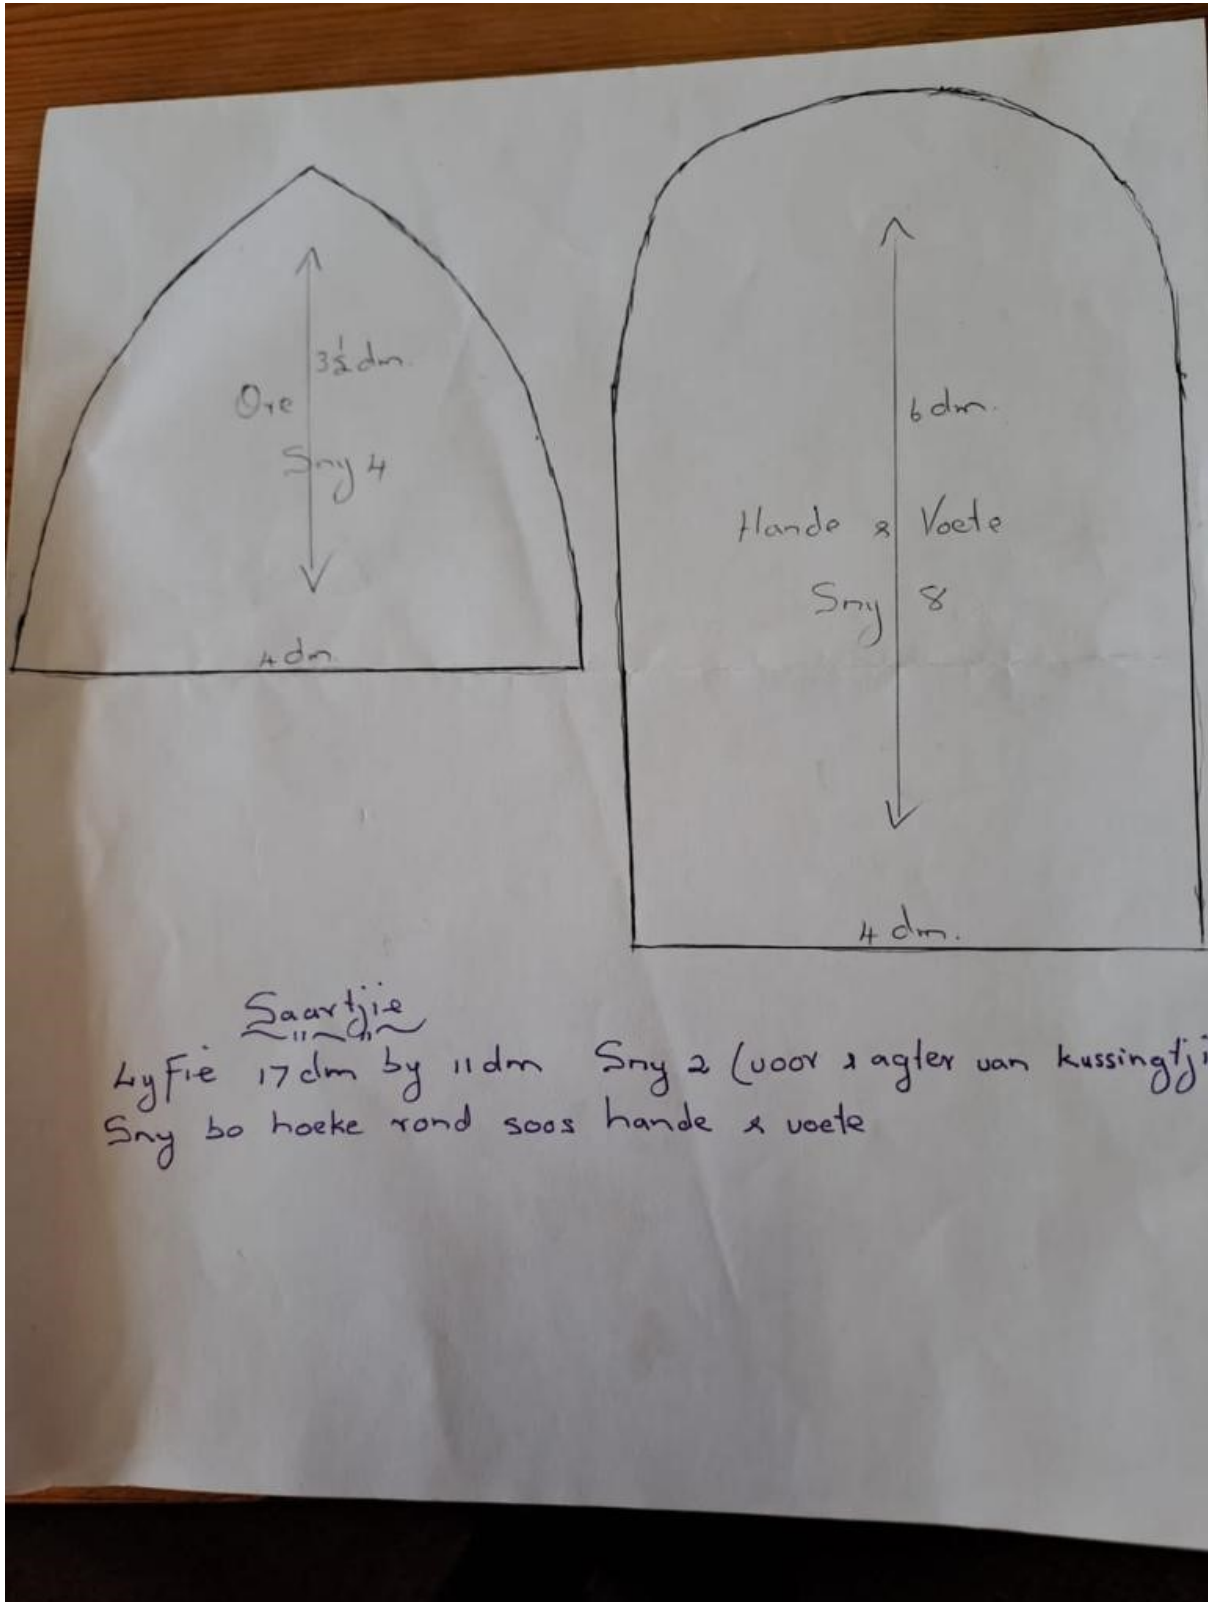 3½ dm.
Ore
Sny 4
4 dm.
6 dm.
Hande & Voete
Sny 8
4 dm.
Saartjie
Lyfie 17 dm by 11 dm Sny 2 (voor & agter van kussingtji
Sny bo hoeke rond soos hande & voete